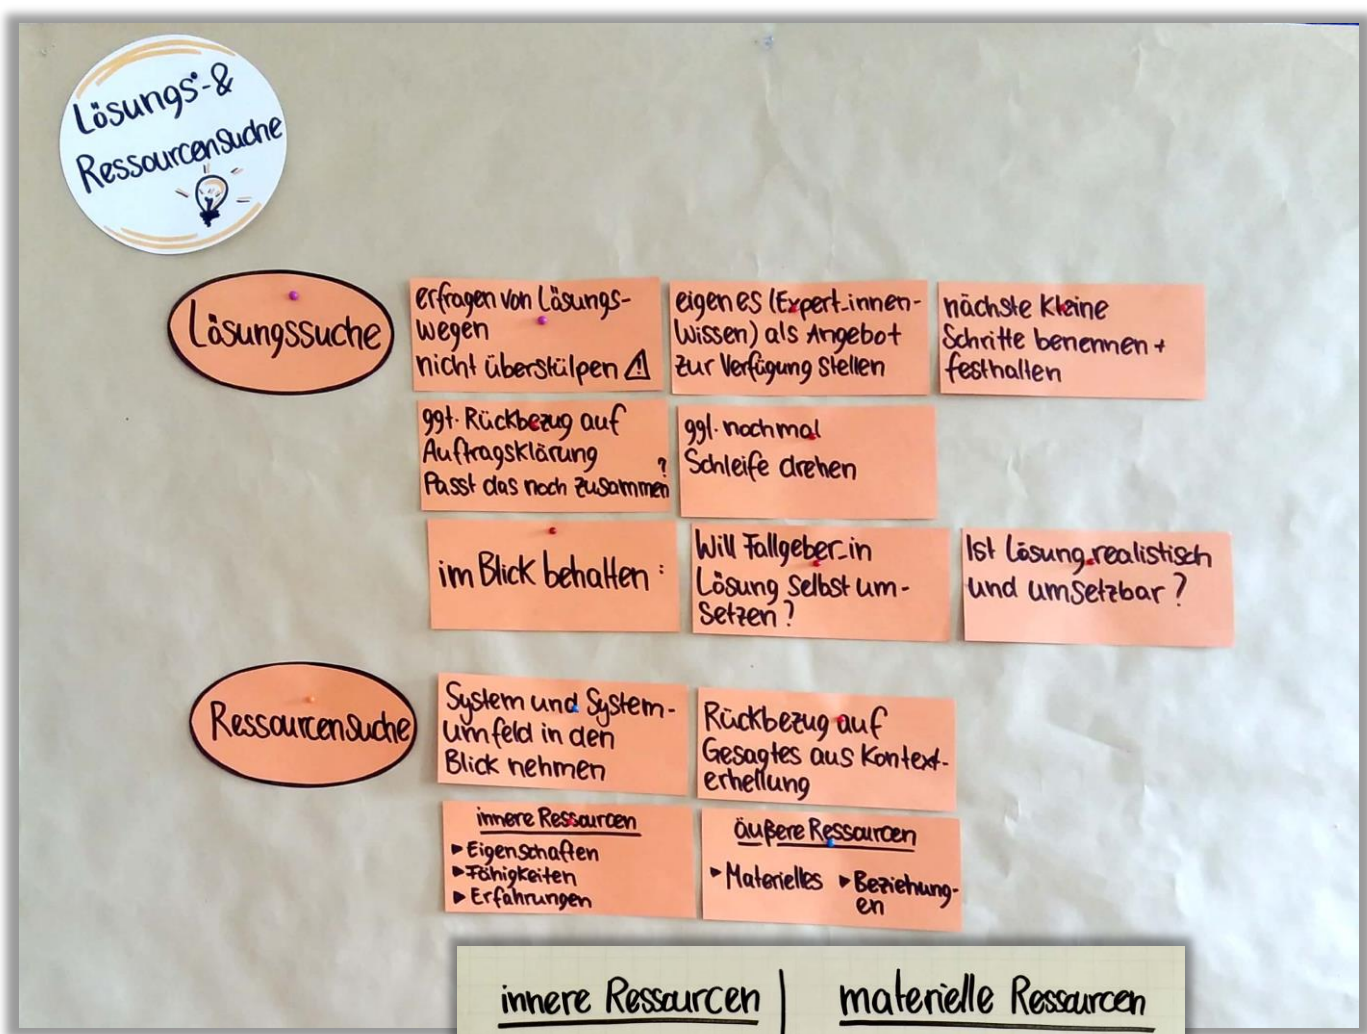 Lösungs-&
Ressourcensuche
Lösungssuche
erfragen von Lösungs-
wegen
nicht überstülpen ⚠
eigenes (Expert_innen-
Wissen) als Angebot
zur Verfügung stellen
nächste kleine
Schritte benennen +
festhalten
ggf. Rückbezug auf
Auftragsklärung
Passt das noch zusammen?
ggf. nochmal
Schleife drehen
im Blick behalten:
Will Fallgeber_in
Lösung selbst um-
setzen?
Ist Lösung realistisch
und umsetzbar?
Ressourcensuche
System und System-
umfeld in den
Blick nehmen
Rückbezug auf
Gesagtes aus Kontext-
erhellung
innere Ressourcen
▸ Eigenschaften
▸ Fähigkeiten
▸ Erfahrungen
äußere Ressourcen
▸ Materielles ▸ Beziehung-
en
innere Ressourcen | materielle Ressourcen